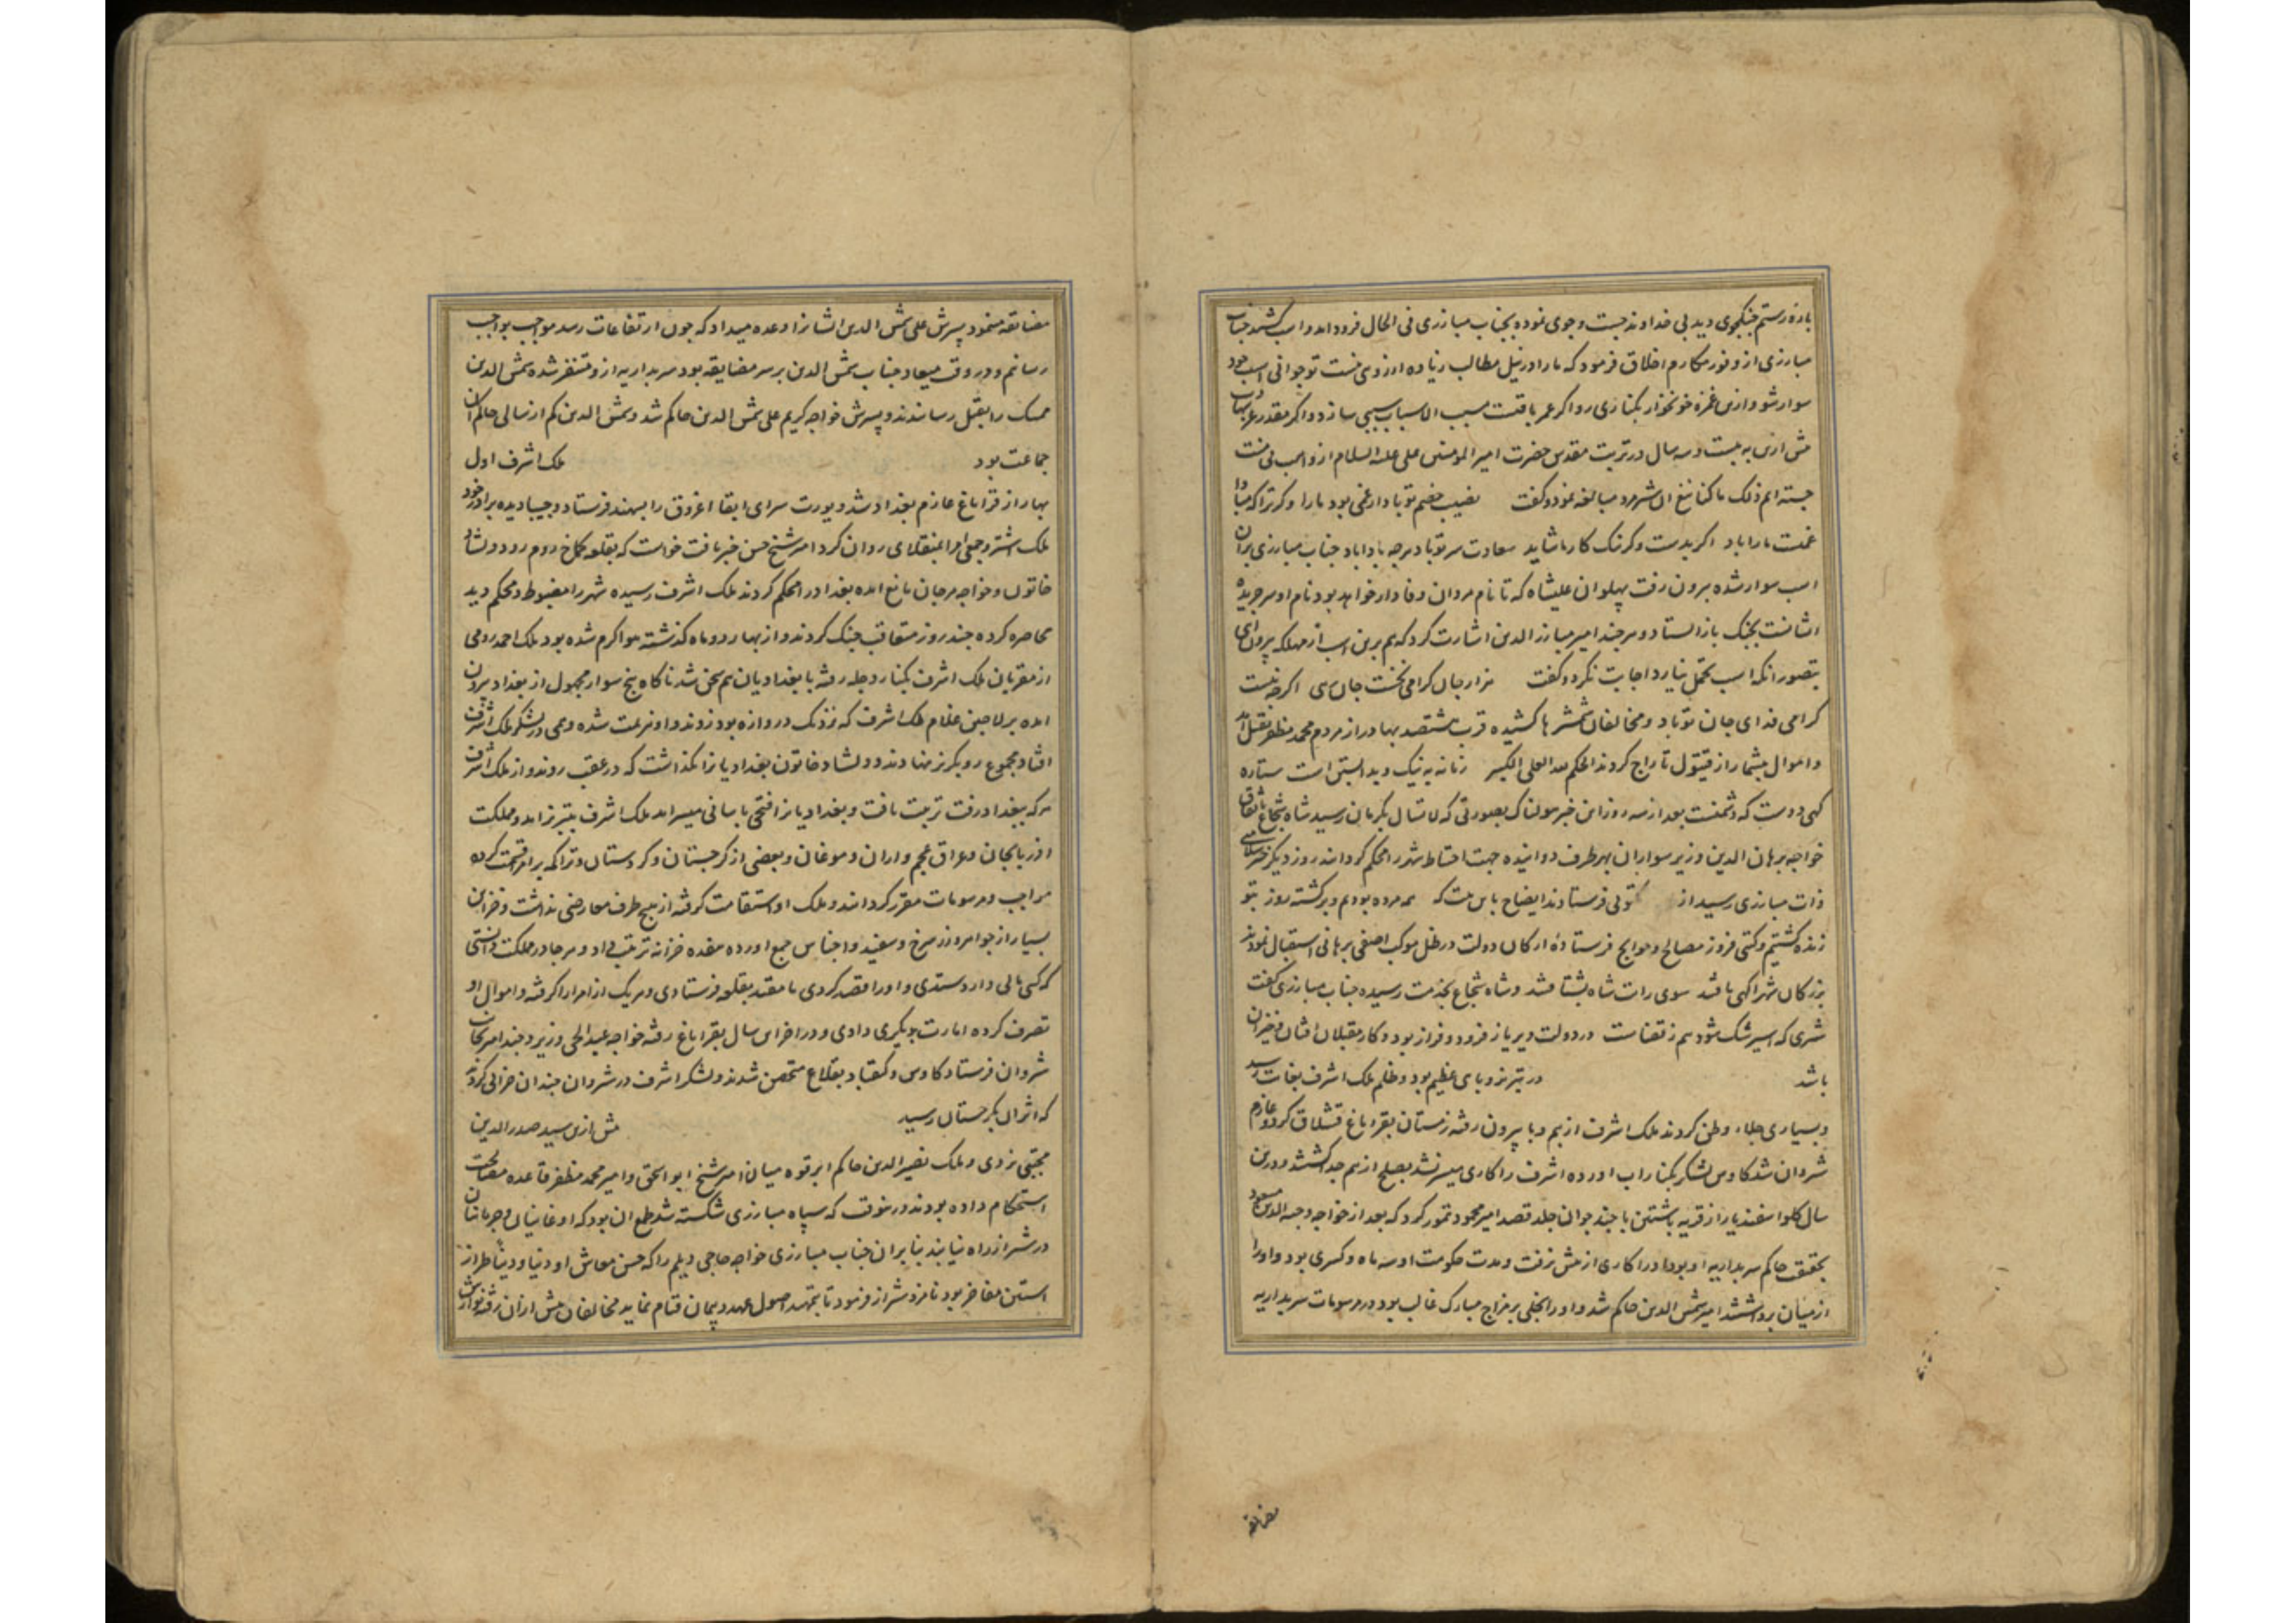 باره رستم جنکجوی دید بی خداوند جست و جوی نموده بجناب مبارزی فی الحال فرود امد و اسب کشید جناب
مبارزی از وفور مکارم اخلاق فرمود که مارا در نیل مطالب زیاده ارزوی نیست تو جوانی اسب خود
سوار شو و ازین غمزه خونخوار بکناری رو اگر عمر باقیست مسبب الاسباب سببی سازد و اگر مقدر
پیش ازین به بیست و سه سال در تربت مقدس حضرت امیر المومنین علی علیه السلام از واهب بی منت
جسته ایم ذلک ما کنا نبغ ان شیرمرد مبالغه نمود و گفت نصیب خصم تو بادا غمی بود مارا وگر ترا که مبادا
غمیست مارا باد اگر بدست وگر نیک کار ما شاید سعادت سر تو باد هرچه باداباد جناب مبارزی بران
اسب سوار شده بیرون رفت پهلوان علیشاه که تا نام مردان وفادار خواهد بود نام او سر جریده
انشانست بجنک باز ایستاد و هر چند امیر مبارز الدین اشارت کرد که هم برین اسب از مهلکه بیرون ای
بتصور انکه اسب تحمل نیارد اجابت نکرد و گفت هزار جان گرامی نخست جان رهی اگرچه نیست
گرامی فدای جان تو باد و مخالفان شمشیرها کشیده قرب هشتصد بهادر از مردم محمد مظفر بقتل آمد
و اموال بیشمار از قیتول تاراج کردند الحکم لله العلی الکبیر زمانه به نیک و بد ابستن است ستاره
کهی دوست که دشمنست بعد از سه روز این خبر هولناک بصورتی که لا تسال بکرمان رسید شاه شجاع باتفاق
خواجه برهان الدین وزیر سواران بهر طرف دوانیده جهت احتیاط شهر را محکم گردانید روز دیگر خبر سلامتی
ذات مبارزی رسید از مکتوبی فرستادند ایضاح باین بیت که همه مرده بودیم و برگشته روز بتو
زنده گشتیم و گیتی فروز مصالح و حوایج فرستاده ارکان دولت در ظل موکب اصفی برهانی استقبال نمودند
بزرگان شهر اگهی یافتند سوی رایت شاه بشتافتند و شاه شجاع بخدمت رسیده جناب مبارزی گفت
شیری که اسیر شک شود هم ز قضاست در دولت دیریاز فرود و فراز بود و کار مقبلان افتان و خیزان
باشد در تبریز وبای عظیم بود و ظلم ملک اشرف بغایت رسید
و بسیاری جلاء وطن کردند ملک اشرف از بیم وبا بیرون رفته زمستان بقراباغ قشلاق کرد و عازم
شروان شد کاوس لشکر بکنار اب اورده اشرف را کاری میسر نشد بصلح از هم جدا شدند و درین
سال کلو اسفندیار از قریه باشتین با چند جوان جلد قصد امیر محمود تمور کرد که بعد از خواجه وجیه الدین مسعود
بحقیقت حاکم سربداریه او بود اورا کاری از پیش نرفت و مدت حکومت او سه ماه و کسری بود و اورا
از میان برداشتند امیر شمس الدین حاکم شد و او را بخلی بر مزاج مبارک غالب بود در مرسومات سربداریه
مضایقه
مضایقه مینمود پسرش علی شمس الدین ایشانرا وعده میداد که چون ارتفاعات رسد مواجب بواجب
رسانم و در وقت میعاد جناب شمس الدین بر سر مضایقه بود سربداریه ازو متنفر شده شمس الدین
ممسک را بقتل رسانیدند و پسرش خواجه کریم علی شمس الدین حاکم شد و شمس الدین کم از سالی حاکم ان
جماعت بود ملک اشرف اول
بهار از قراباغ عازم بغداد شد و یورت سرای ابقا اغروق را بسهند فرستاد و جیبا دیده برادر خود
ملک شتر و جمعی امرا بمنقلای روان کرد امیر شیخ حسن خبر یافت خواست که بقلعه کماخ روم رود دلشاد
خاتون و خواجه مرجان مانع امده بغداد را محکم کردند ملک اشرف رسیده شهر را مضبوط و محکم دید
محاصره کرده چند روز متعاقب جنک کردند و از بهار دو ماه گذشته هوا گرم شده بود ملک احمد رومی
از مقربان ملک اشرف بکنار دجله رفته با بغدادیان هم سخن شد ناگاه پنج سوار مجهول از بغداد بیرون
امده بر لاجین غلام ملک اشرف که نزدیک دروازه بود زدند و او هزیمت شده وهمی در لشکر ملک اشرف
افتاد مجموع رو بگریز نهادند و دلشاد خاتون بغدادیانرا نگذاشت که در عقب روند و از ملک اشرف
هر که ببغداد رفت تربیت یافت و بغدادیانرا فتحی باسانی میسر امد ملک اشرف بتبریز امد و مملکت
اذربایجان و عراق عجم و اران و موغان و بعضی از گرجستان و کردستان و تراکمه بر امرا قسمت کرده
مواجب و مرسومات مقرر گردانید و ملک او استقامت گرفته از هیچ طرف معارضی نداشت و خزاین
بسیار از جواهر و زر سرخ و سفید و اجناس جمع اورده هفده خزانه ترتیب داد و هر جا در مملکت دانستی
که کسی مالی دارد ستدی و اورا قصد کردی یا مقید بقلعه فرستادی و هر یک از امرا را گرفته و اموال او
تصرف کرده امارت بدیگری دادی و در اخر این سال بقراباغ رفته خواجه عبد الحی وزیر و چند امیر بجانب
شروان فرستاد کاوس و کیقباد بقلاع متحصن شدند و لشکر اشرف در شروان چندان خرابی کردند
که اثر ان بگرجستان رسید پیش ازین سید صدر الدین
مجتبی یزدی و ملک نصیر الدین حاکم ابرقوه میان امیر شیخ ابو اسحق و امیر محمد مظفر قاعده مصالحت
استحکام داده بودند درینوقت که سپاه مبارزی شکسته شد طمع ان بود که اوغانیان و جرمانیان
در شیراز راه نیابند بنابران جناب مبارزی خواجه حاجی دیلم را که حسن معاش او دنیا و دینا طراز
استین مفاخر بود نامزد شیراز فرمود تا بتمهید اصول عهد و پیمان قیام نماید مخالفان پیش ازان رفته نوازش